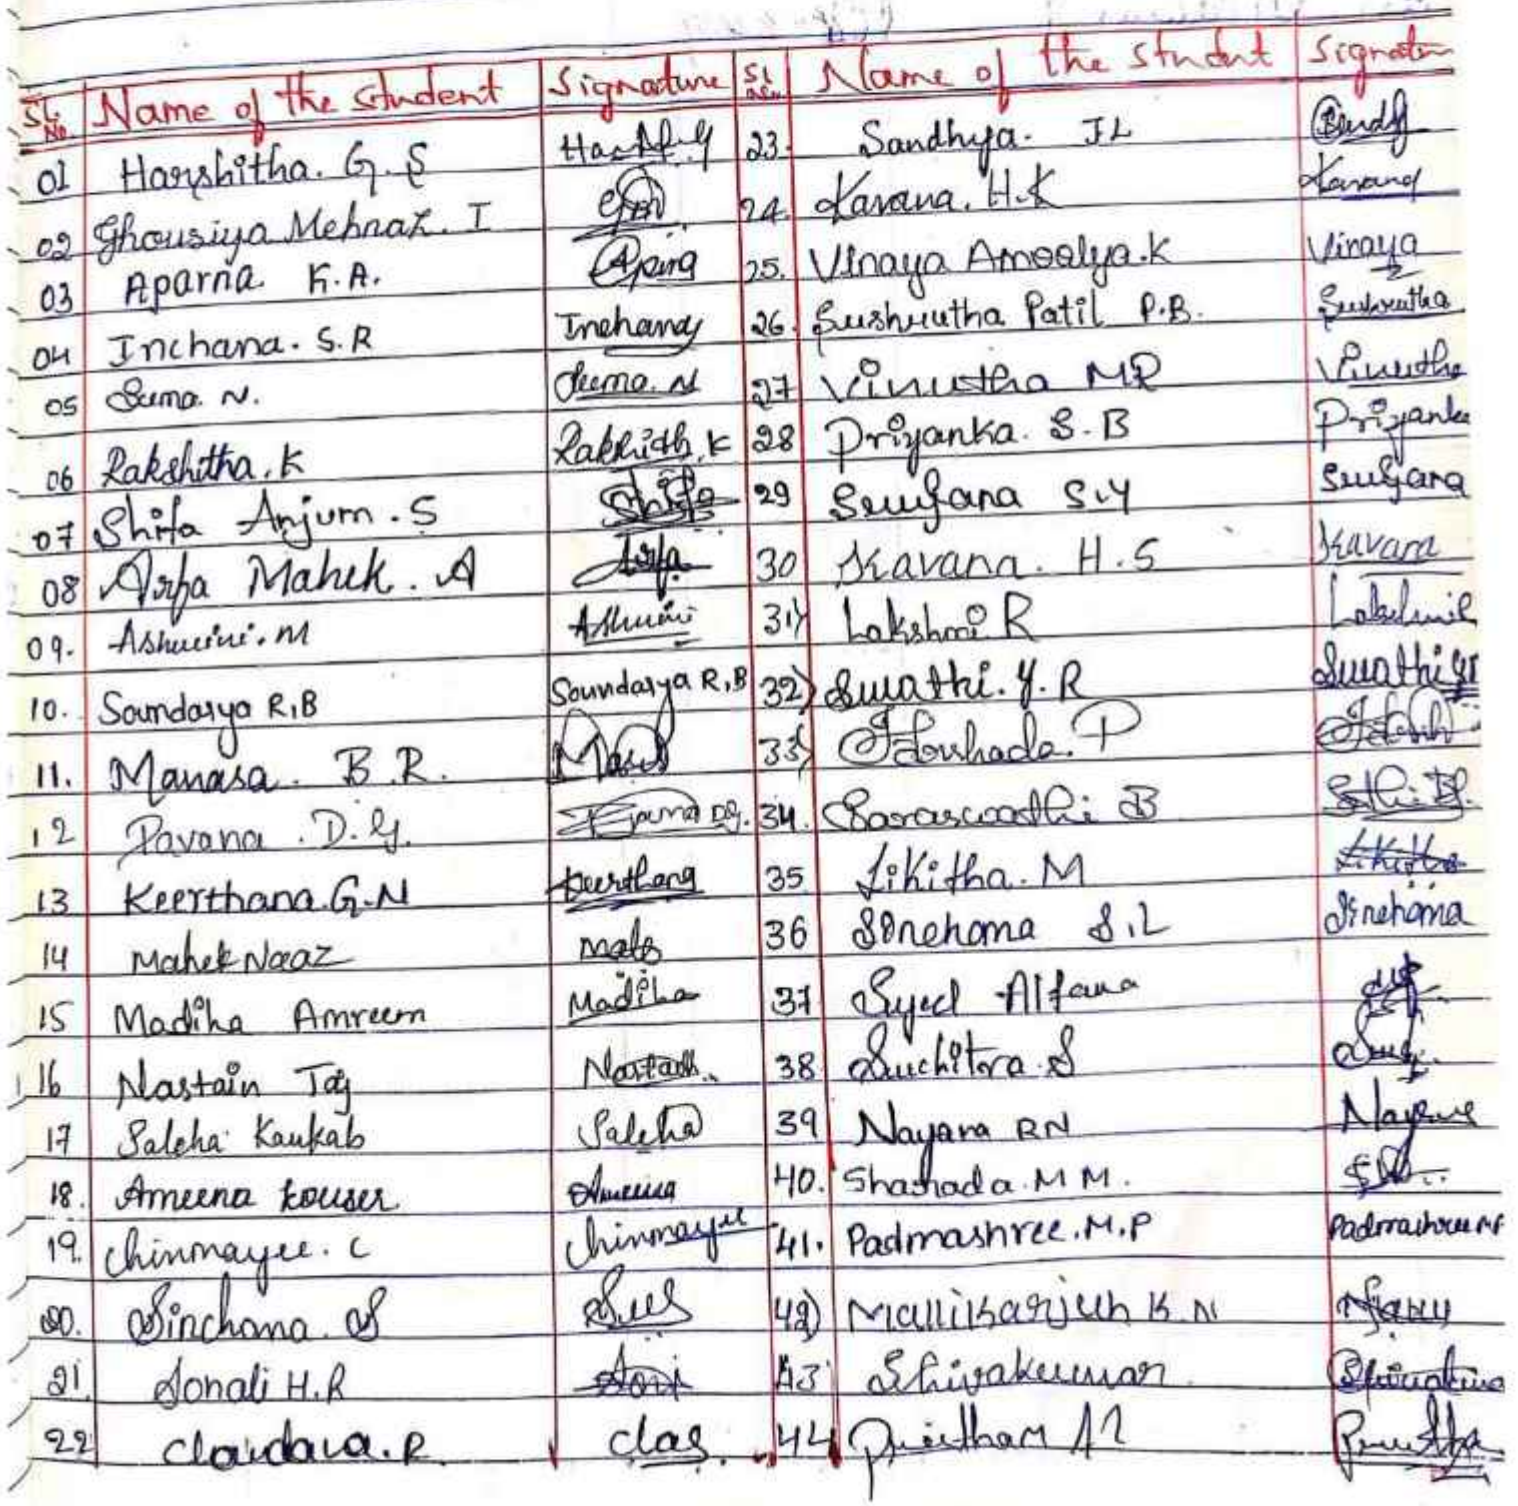 Sl. No. Name of the student Signature Sl. No. Name of the student Signature
01 Harshitha. G. S 23. Sandhya. J L
02 Ghousiya Mehnaz. I 24. Kavana. H.K Kavana
03 Aparna K.A. 25. Vinaya Amoolya.K Vinaya
04 Inchana. S.R Inchana 26. Sushrutha Patil P.B. Sushrutha
05 Suma. N. Suma. N 27 Vinutha MR Vinutha
06 Rakshitha. K Rakshith. K 28 Priyanka. S. B Priyanka
07 Shifa Anjum. S Shifa 29 Srujana S.Y Srujana
08 Arfa Mahek. A Arfa 30 Kavana. H. S Kavana
09. Ashwini. M Ashwini 31) Lakshmi R
10. Soundarya R.B Soundarya R.B 32) Swathi. Y. R Swathi YR
11. Manasa. B. R. 33) P
12 Pavana. D. G. 34. Saraswathi B
13 Keerthana. G.N Keerthana 35 Likitha. M Likitha
14 Mahek Naaz 36 Sinchana S.L Sinchana
15 Madiha Amreen Madiha 37 Syed Alfana
16 Nastain Taj 38 Suchitra. S
17 Saleha Kaukab Saleha 39 Nayana RN
18. Ameena Kouser Ameena 40. Sharada. M M.
19. Chinmayee. C Chinmayee 41. Padmashree. M.P Padmashree MP
20. Sinchana. S 42) Mallikarjun K. N
21. Sonali H.R 43 Shivakumar
22 Chandana. R 44 Preetham